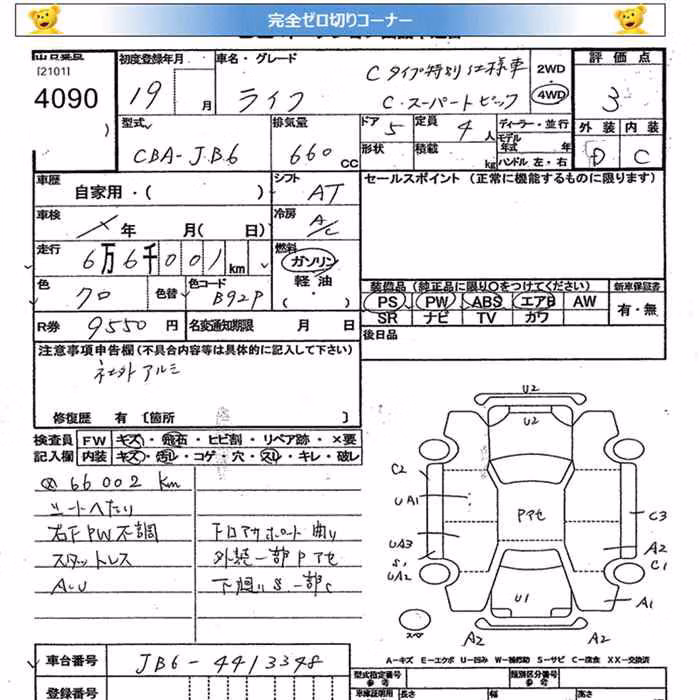 完全ゼロ切りコーナー
[2101]
4090
初度登録年月
19 月
車名・グレード
ライフ
Cタイプ特別仕様車
C・スーパートピック
2WD
4WD
評価点
3
外装 内装
D C
型式
CBA-JB6
排気量
660 CC
ドア 5
定員 4 人
形状
積載 kg
ディーラー・並行
モデル年式 年
ハンドル 左・右
車歴
自家用・( )
シフト
AT
セールスポイント (正常に機能するものに限ります)
車検
年 月( 日)
冷房
A/C
走行
6万6千001 km
燃料
ガソリン
軽油
( ・ )
色
70
色替
色コード
B92P
装備品 (純正品に限り○をつけてください)
新車保証書
PS PW ABS エアB AW
SR ナビ TV カワ
有・無
R券 9550 円
名変通知期限 月 日
後日品
注意事項申告欄 (不具合内容等は具体的に記入して下さい)
社外アルミ
修復歴 有 〔箇所 〕
検査員 FW キズ・飛石・ヒビ割・リペア跡・×要
記入欄 内装 キズ・汚レ・コゲ・穴・スレ・キレ・破レ
66002 Km
シートヘたり
右FPW不調
スタットレス
フロアサポート曲り
外装一部Pアセ
下廻りS一部C
U2
U2
C2
UA1
Pアセ
C3
UA3
S1
UA2
A2
C1
U1
A1
スペア
A2
A2
A-キズ E-エクボ U-凹み W-補修跡 S-サビ C-腐食 XX-交換済
車台番号
JB6-4413348
登録番号
型式指定番号
参考
類別区分番号
参考
車庫証明用 長さ 幅 高さ